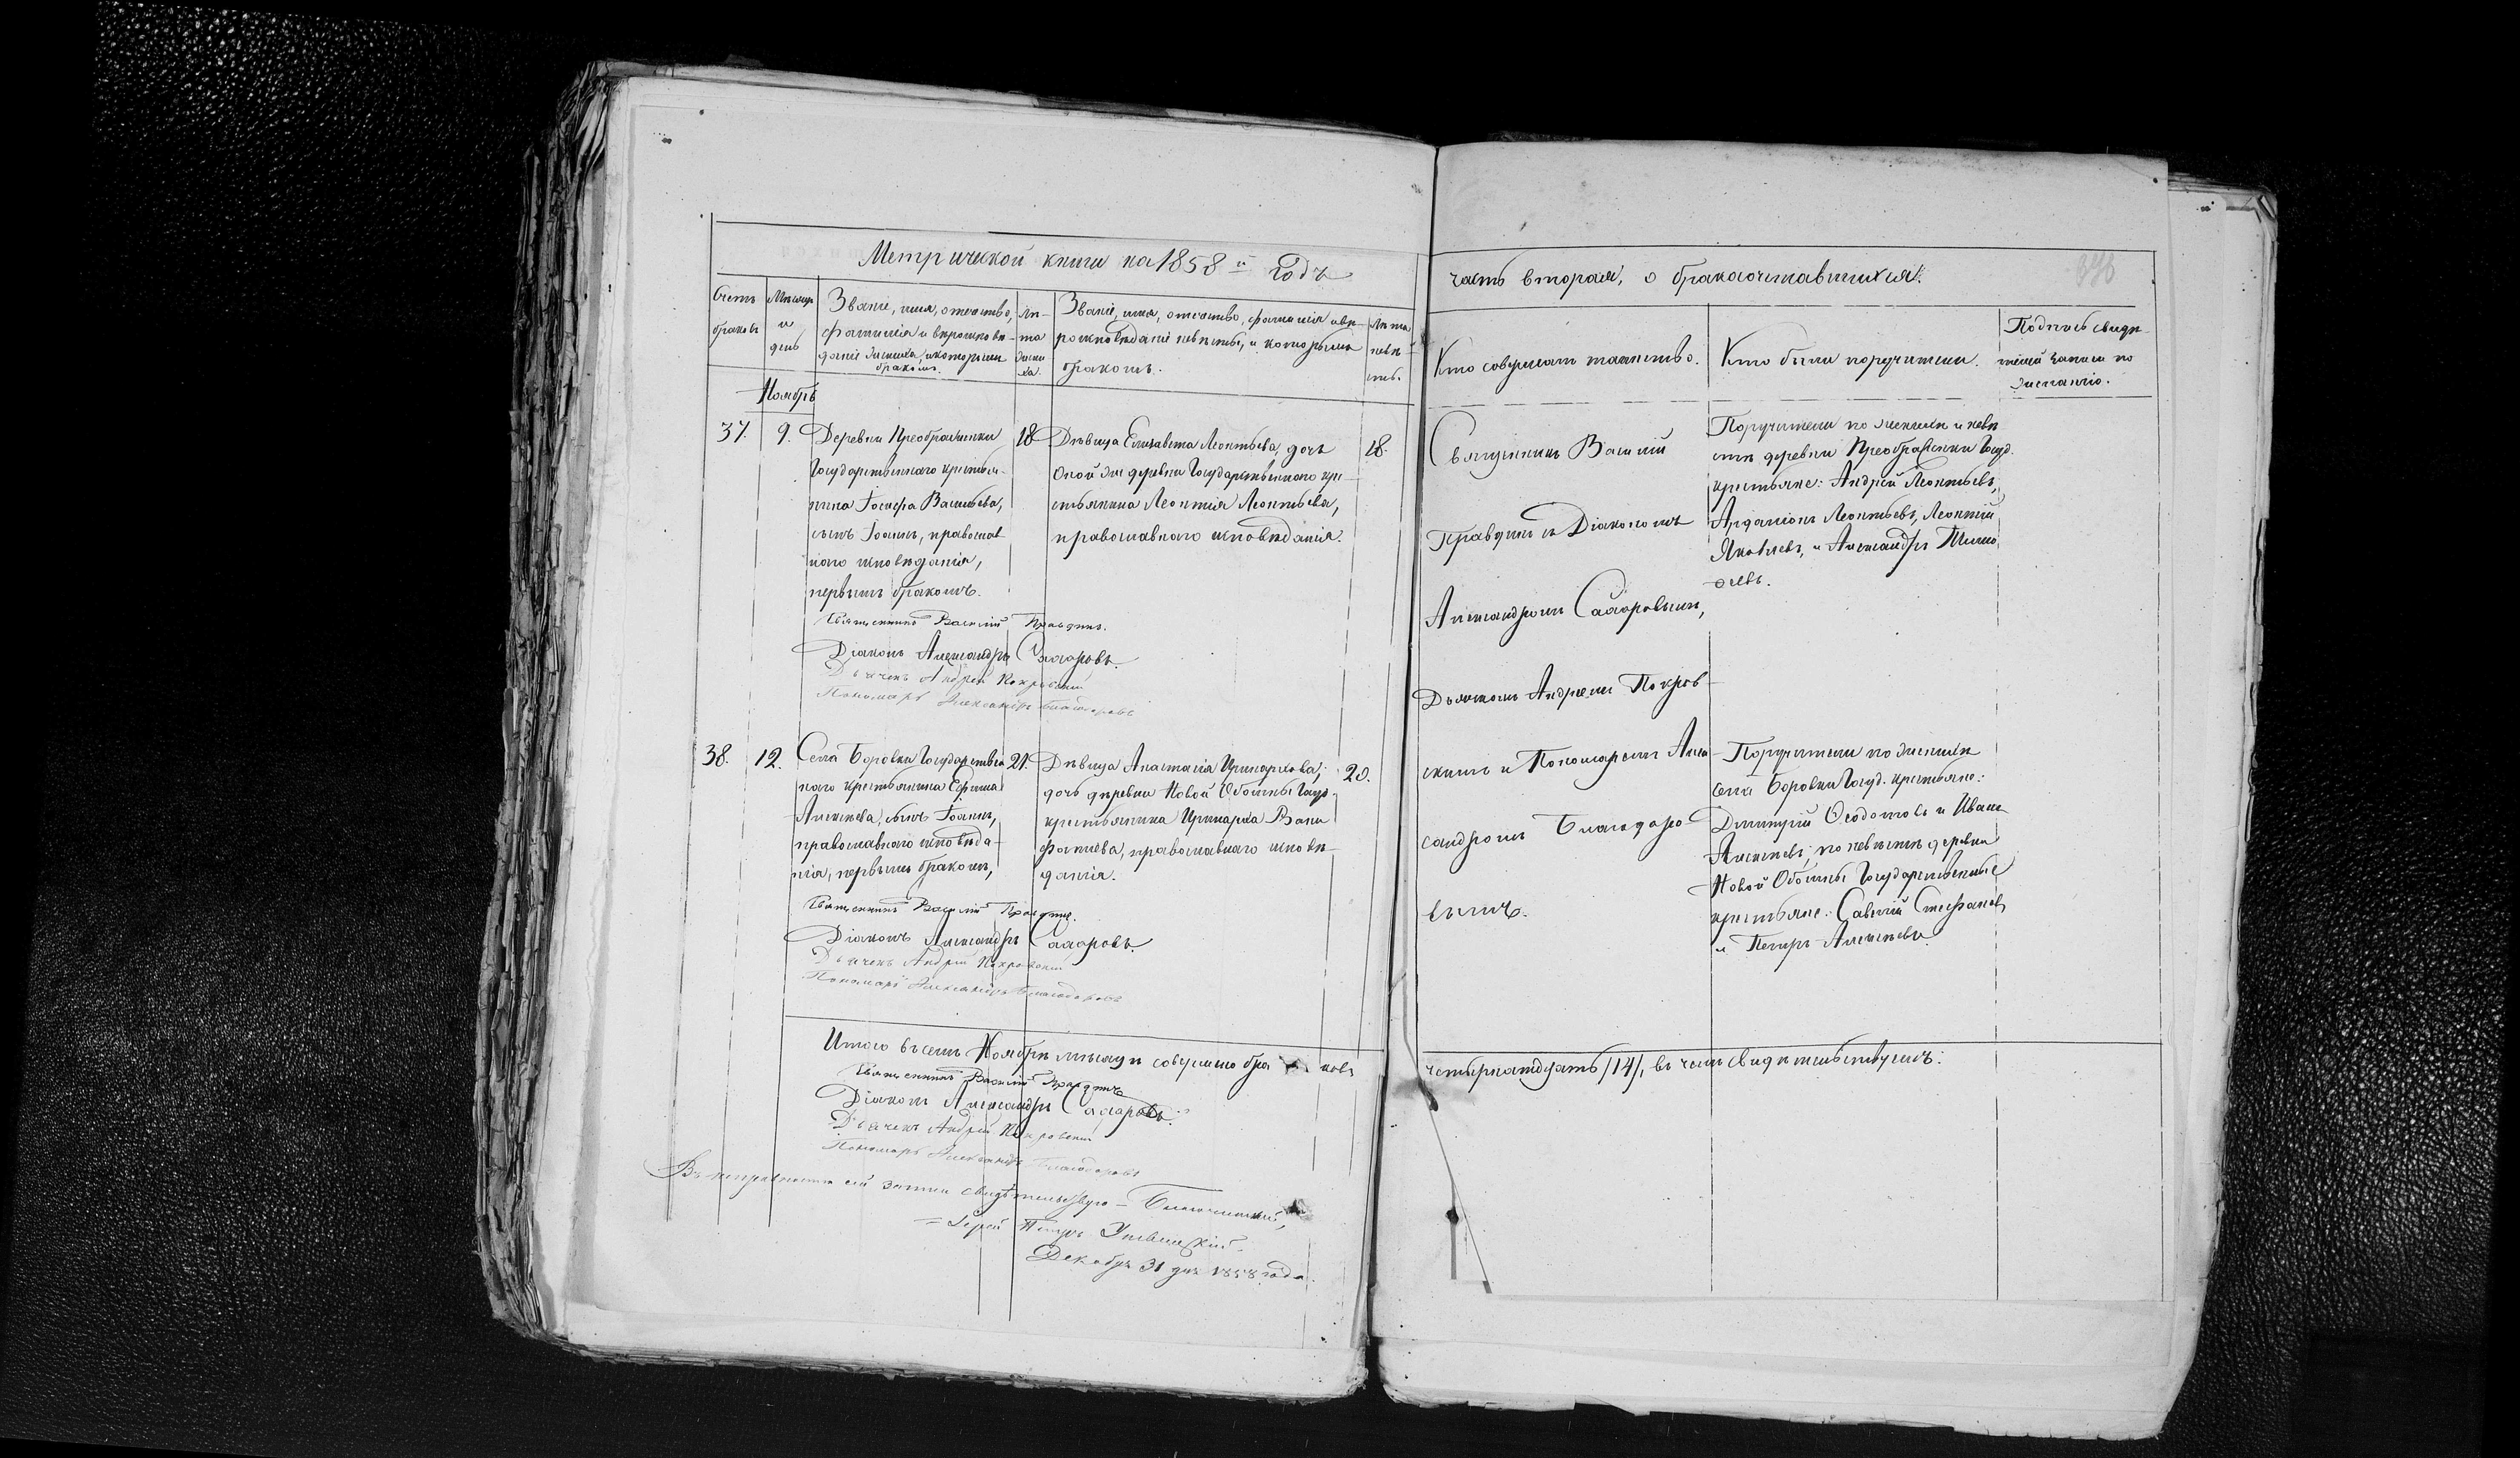 Метрической книги на 1858й Годъ
Счетъ браковъ
Мѣсяцъ и день
Званіе, имя, отчество,
фамилія и вѣроисповѣ-
даніе жениха, и которымъ
бракомъ.
Лѣ-
та
жени
ха.
Званіе, имя, отчество, фамилія и вѣ-
роисповѣданіе невѣсты, и которымъ
бракомъ.
Лѣта
невѣ-
сты.
Ноябрь
37. 9.
Деревни Преображенки
Государственнаго крестья-
нина Іосифа Васильева,
сынъ Іоаннъ, православ
наго исповѣданія,
первымъ бракомъ.
18
Дѣвица Елизавета Леонтьева, дочь
Оной же деревни Государственнаго кре-
стьянина Леонтія Леонтьева,
православнаго исповѣданія.
18.
Священникъ Василій Правдинъ.
Діаконъ Александръ Сахаровъ.
Дьячекъ Андрей Покровскій
Пономарь Александръ Благодаровъ
38. 12.
Села Боровки Государствен
наго крестьянина Ефима
Алексѣева, сынъ Іоаннъ,
православнаго исповѣда-
нія, первымъ бракомъ,
21.
Дѣвица Анастасія Иринархова,
дочь деревни Новой Обошны Госуд.
крестьянина Иринарха Вани
фатиева, православнаго исповѣ-
данія.
20.
Священникъ Василій Правдинъ.
Діаконъ Александръ Сахаровъ.
Дьячекъ Андрей Покровскій
Пономарь Александръ Благодаровъ
Итого въ семъ Ноябрѣ мѣсяцѣ совершено бра ковъ
Священникъ Василій Правдинъ
Діаконъ Александръ Сахаровъ.
Дьячекъ Андрей Покровскій
Пономарь Александръ Благодаровъ
сей записи свидѣтельствую - Благочинный,
= Іерей Петръ
Декабря 31 дня 1858 года.
часть вторая, о бракосочетавшихся.
Кто совершалъ таинство.
Кто были поручители.
Подпись свидѣ-
телей записи по
желанію.
Священникъ Василій
Правдинъ съ Діакономъ
Александромъ Сахаровымъ,
Дьячкомъ Андреемъ Покров-
скимъ и Пономаремъ Алек
сандромъ Благодаро-
вымъ.
Поручители по женихѣ и невѣ
стѣ деревни Преображенки Госуд.
крестьяне: Андрей Леонтьевъ,
Ардаліонъ Леонтьевъ, Леонтій
Яковлевъ, и Александръ Тимо
ѳеевъ.
Поручители по женихѣ
села Боровки Госуд. крестьяне:
Димитрій Ѳеодотовъ и Иванъ
Алексѣевъ; по невѣстѣ деревни
Новой Обошны Государственные
крестьяне: Савелій Стефановъ
и Петръ Алексѣевъ.
четырнадцать /14/, въ чемъ свидѣтельствуемъ: